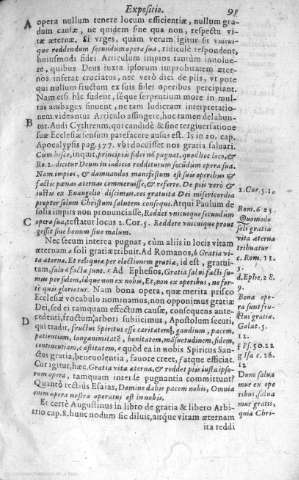 Expositio. 95
A opera nullum tenere locum efficientæ, nullum gra-
dum causæ, ne quidem sine qua non, respectu vi-
tæ æternæ. Si urges, quâm verum igitur sit
que reddendum secundum opera sua, ridiculè respondent,
huiusmodi fidei Articulum impios tantùm involve-
re, quibus Deus iuxta ipsorum improbitatem æter-
nos inferat cruciatus, nec verò dici de piis, ut pote
qui nullum fructum ex suis fidei operibus percipiant.
Nam etsi hîc sudent, séque serpentium more in mul-
tas ambages sinuent, ne tam ludicram interpretatio-
nem videantur Articulo affingere, hoc tamen delabun-
B tur. Audi Cythreum, qui candidè & sine tergiversatione
suæ Ecclesiæ sensum patefacere ausus est. Is in 20. cap.
Apocalypsis pag. 377. ubi docuisset nos gratia salvari.
Cùm hîc, inquit, principiò fidei is pugnat, quod hoc loco, &
Ro. 2. dicitur Deum in iudicio redditurum secundum opera sua.
Nam impios, & damnandos manifestum est suis operibus &
factis pœnas æternas commeruisse, & referre. De piis verò &
iustis ex Evangelio discimus, eos gratuita Dei misericordia
propter solum Christum salutem consequi. Atqui Paulum de
solis impiis non pronunciasse, Reddet unicuique secundum
C opera sua, testatur locus 2. Cor. 5. Reddere unicuique prout
gessit sive bonum sive malum.
2. Cor. 5. 10
Nec secum interea pugnat, cùm aliis in locis vitam
æternam soli gratiæ tribuit. Ad Romanos, 6 Gratia vi-
ta æterna. Et reliquiæ per electionem gratiæ, id est, gratui-
tam, salvæ factæ sunt. c Ad Ephesios, Gratia salvi facti su-
mus per fidem, idque non ex nobis, &c. non ex operibus, ne for-
tè quis glorietur. Nam bona opera, quæ merita prisco
Ecclesiæ vocabulo nominamus, non opponimus gratiæ
Dei, sed ei tamquam effectum causæ, consequens ante-
D cedenti, fructum arbori subiicimus, Apostolum secuti,
qui tradit, fructus Spiritus esse caritatem, gaudium, pacem,
patientiam, longanimitatē, bonitatem, mansuetudinem, fidem,
continentiam, castitatem, e quòd ea in nobis Spiritus Sanc-
tus gratia, benevolentia, favore creet, fatque efficiat.
Cur igitur, hæc, Gratia vita æterna, & reddet piis iusta ipso-
rum opera, tamquam inter se pugnantia committunt?
Quantò rectius Esaias, Domine dabis pacem nobis, Omnia
enim opera nostra operatus es in nobis.
Et certè Augustinus in libro de gratia & libero Arbi-
trio cap. 8. hunc nodum sic diluit, utque vitam æternam
ita reddi
Rom. 6 23.
Quomodo
soli gratiæ
vita æterna
tribuatur
c. Rom. 11.
5.
d. Ephe. 28.
9.
Bona ope-
ra sunt fru-
ctus gratiæ.
Galat. 5.
12.
f Ps. 50. 22
g Isa c. 26.
12
Dum salua
mur ex ope
ribus, salua
mur gratia,
quia Chri-